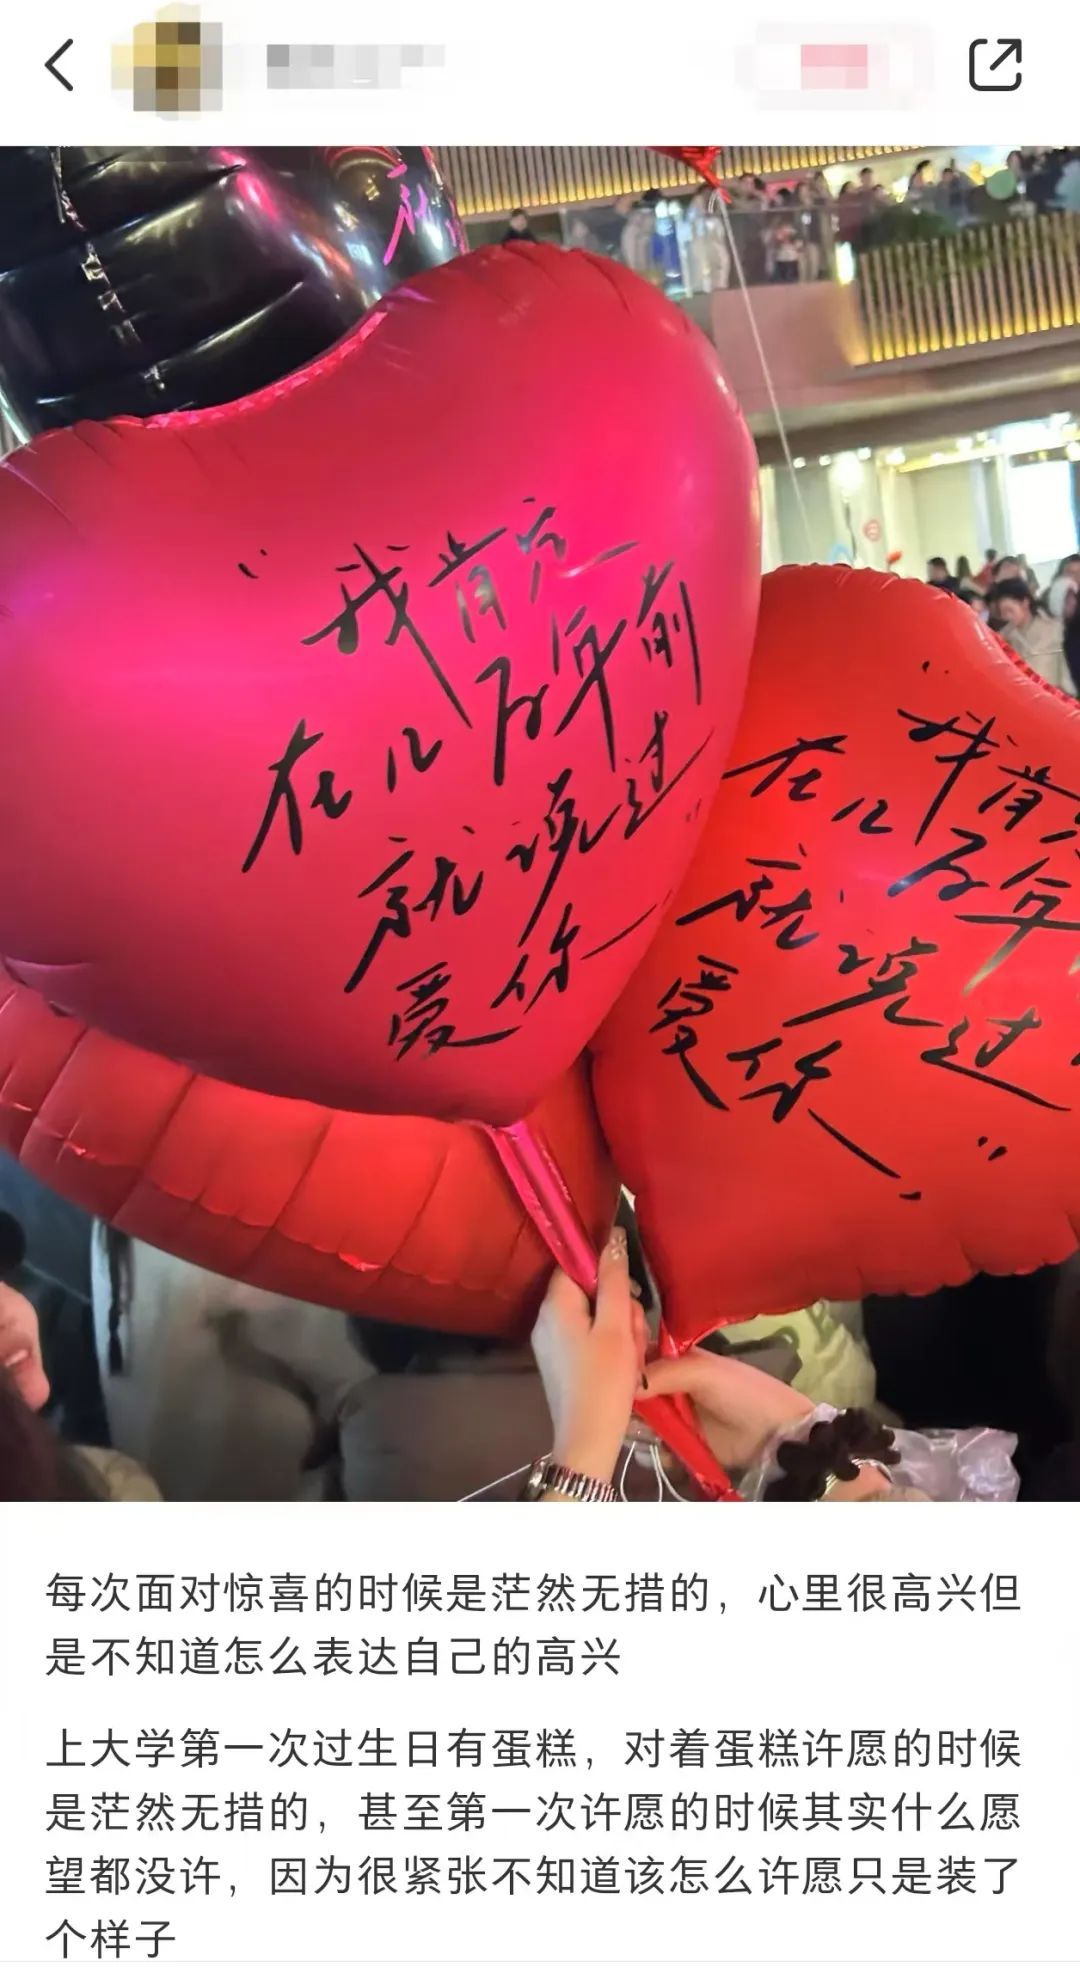 “我肯定
在几百年前
就说过
爱你”
“我肯
在几百年
就说过
爱你”
每次面对惊喜的时候是茫然无措的，心里很高兴但
是不知道怎么表达自己的高兴
上大学第一次过生日有蛋糕，对着蛋糕许愿的时候
是茫然无措的，甚至第一次许愿的时候其实什么愿
望都没许，因为很紧张不知道该怎么许愿只是装了
个样子